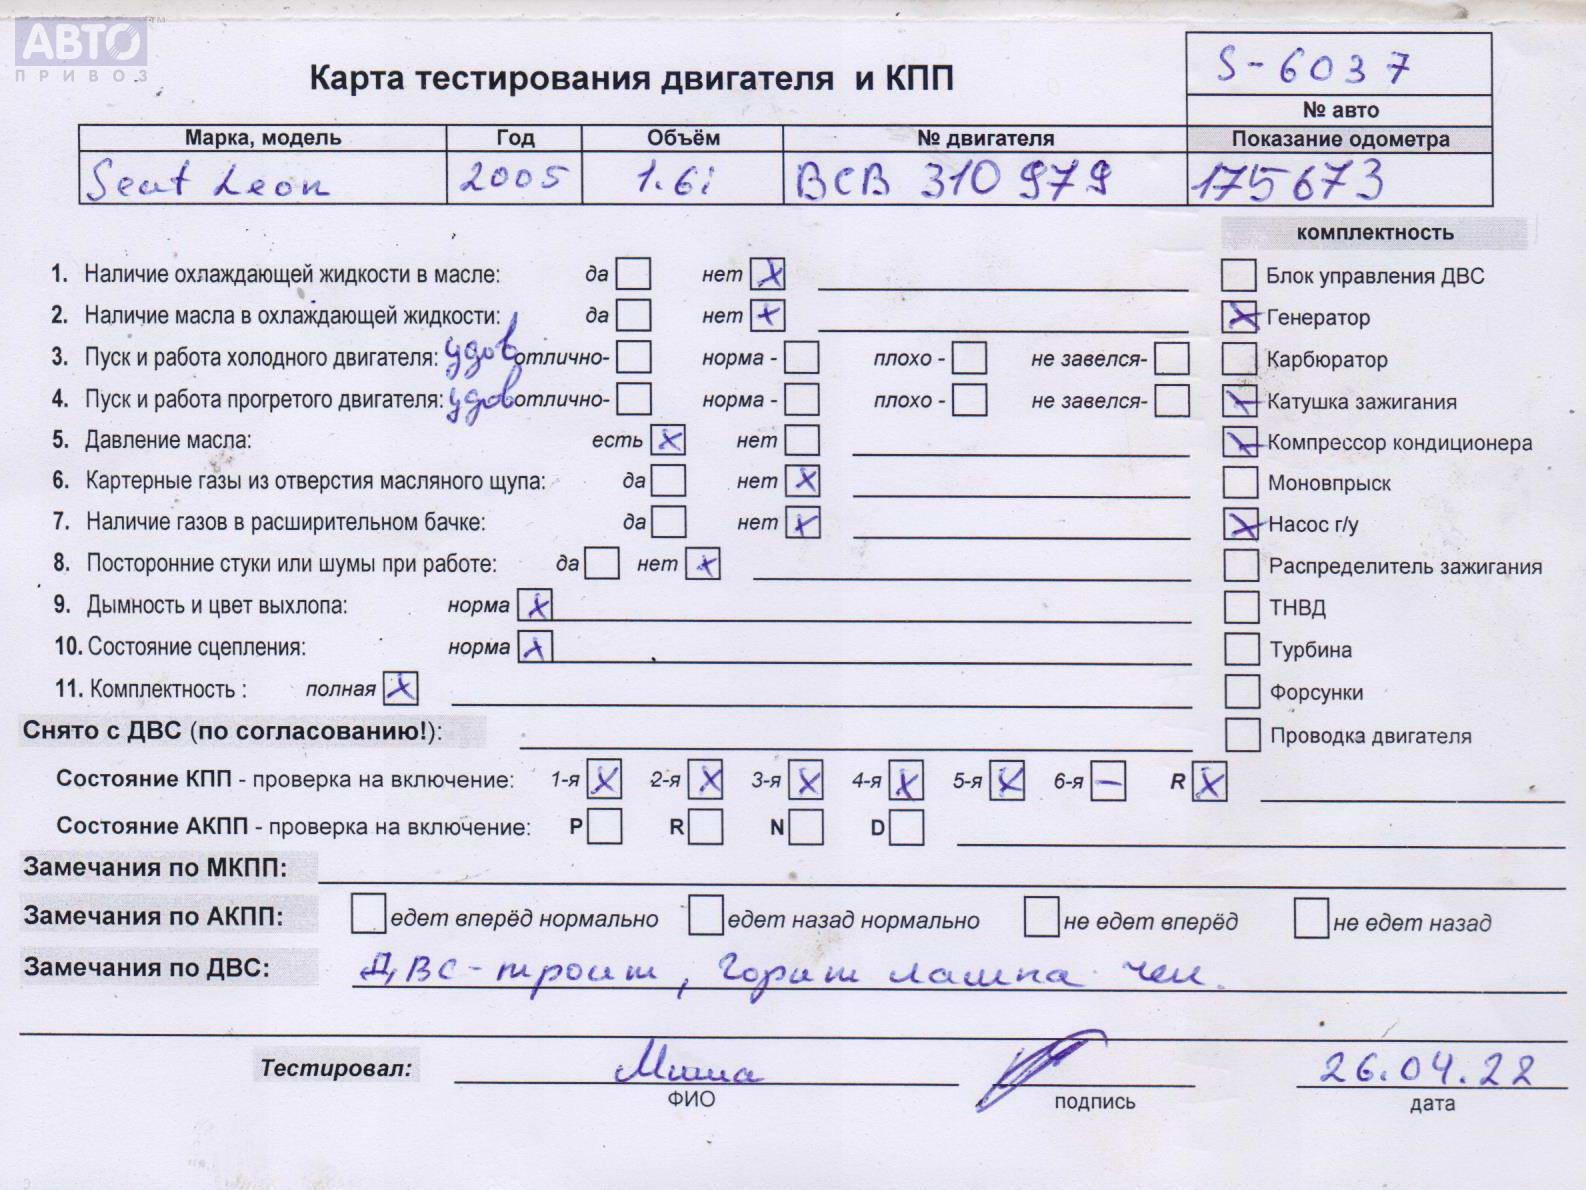 АВТО ТМ
ПРИВОЗ
S-6037
Карта тестирования двигателя и КПП
№ авто
Марка, модель Год Объём № двигателя Показание одометра
Seat Leon 2005 1.6i BCB 310979 175673
комплектность
1. Наличие охлаждающей жидкости в масле: да нет X Блок управления ДВС
2. Наличие масла в охлаждающей жидкости: да нет X X Генератор
3. Пуск и работа холодного двигателя: удов отлично- норма - плохо - не завелся- Карбюратор
4. Пуск и работа прогретого двигателя: удов отлично- норма - плохо - не завелся- X Катушка зажигания
5. Давление масла: есть X нет X Компрессор кондиционера
6. Картерные газы из отверстия масляного щупа: да нет X Моновпрыск
7. Наличие газов в расширительном бачке: да нет X X Насос г/у
8. Посторонние стуки или шумы при работе: да нет X Распределитель зажигания
9. Дымность и цвет выхлопа: норма X ТНВД
10. Состояние сцепления: норма X Турбина
11. Комплектность : полная X Форсунки
Снято с ДВС (по согласованию!): Проводка двигателя
Состояние КПП - проверка на включение: 1-я X 2-я X 3-я X 4-я X 5-я X 6-я – R X
Состояние АКПП - проверка на включение: P R N D
Замечания по МКПП:
Замечания по АКПП: едет вперёд нормально едет назад нормально не едет вперёд не едет назад
Замечания по ДВС: ДВС-троит, горит лампа чек.
Тестировал: Миша 26.04.22
ФИО подпись дата